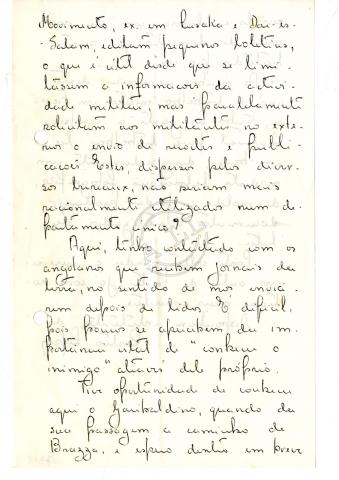 Movimento, ex. em Lusaka e Dar-es-
-Salam, editam pequenos boletins,
o que é útil desde que se limi-
tassem a informações da activi-
dade militar, mas paralelamente
solicitam aos militantes no exte-
rior o envio de recortes e publi-
cações. Estes, dispersos pelos diver-
sos bureaux, não seriam mais
racionalmente utilizados num de-
partamento único?
Aqui, tenho contactado com os
angolanos que recebem jornais da
terra, no sentido de nos envia-
rem depois de lidos. É difícil,
pois poucos se apercebem da im-
portância vital de "conhecer o
inimigo" através dele próprio.
Tive oportunidade de conhecer
aqui o Garibaldino, quando da
sua passagem a caminho de
Brazza, e espero dentro em breve